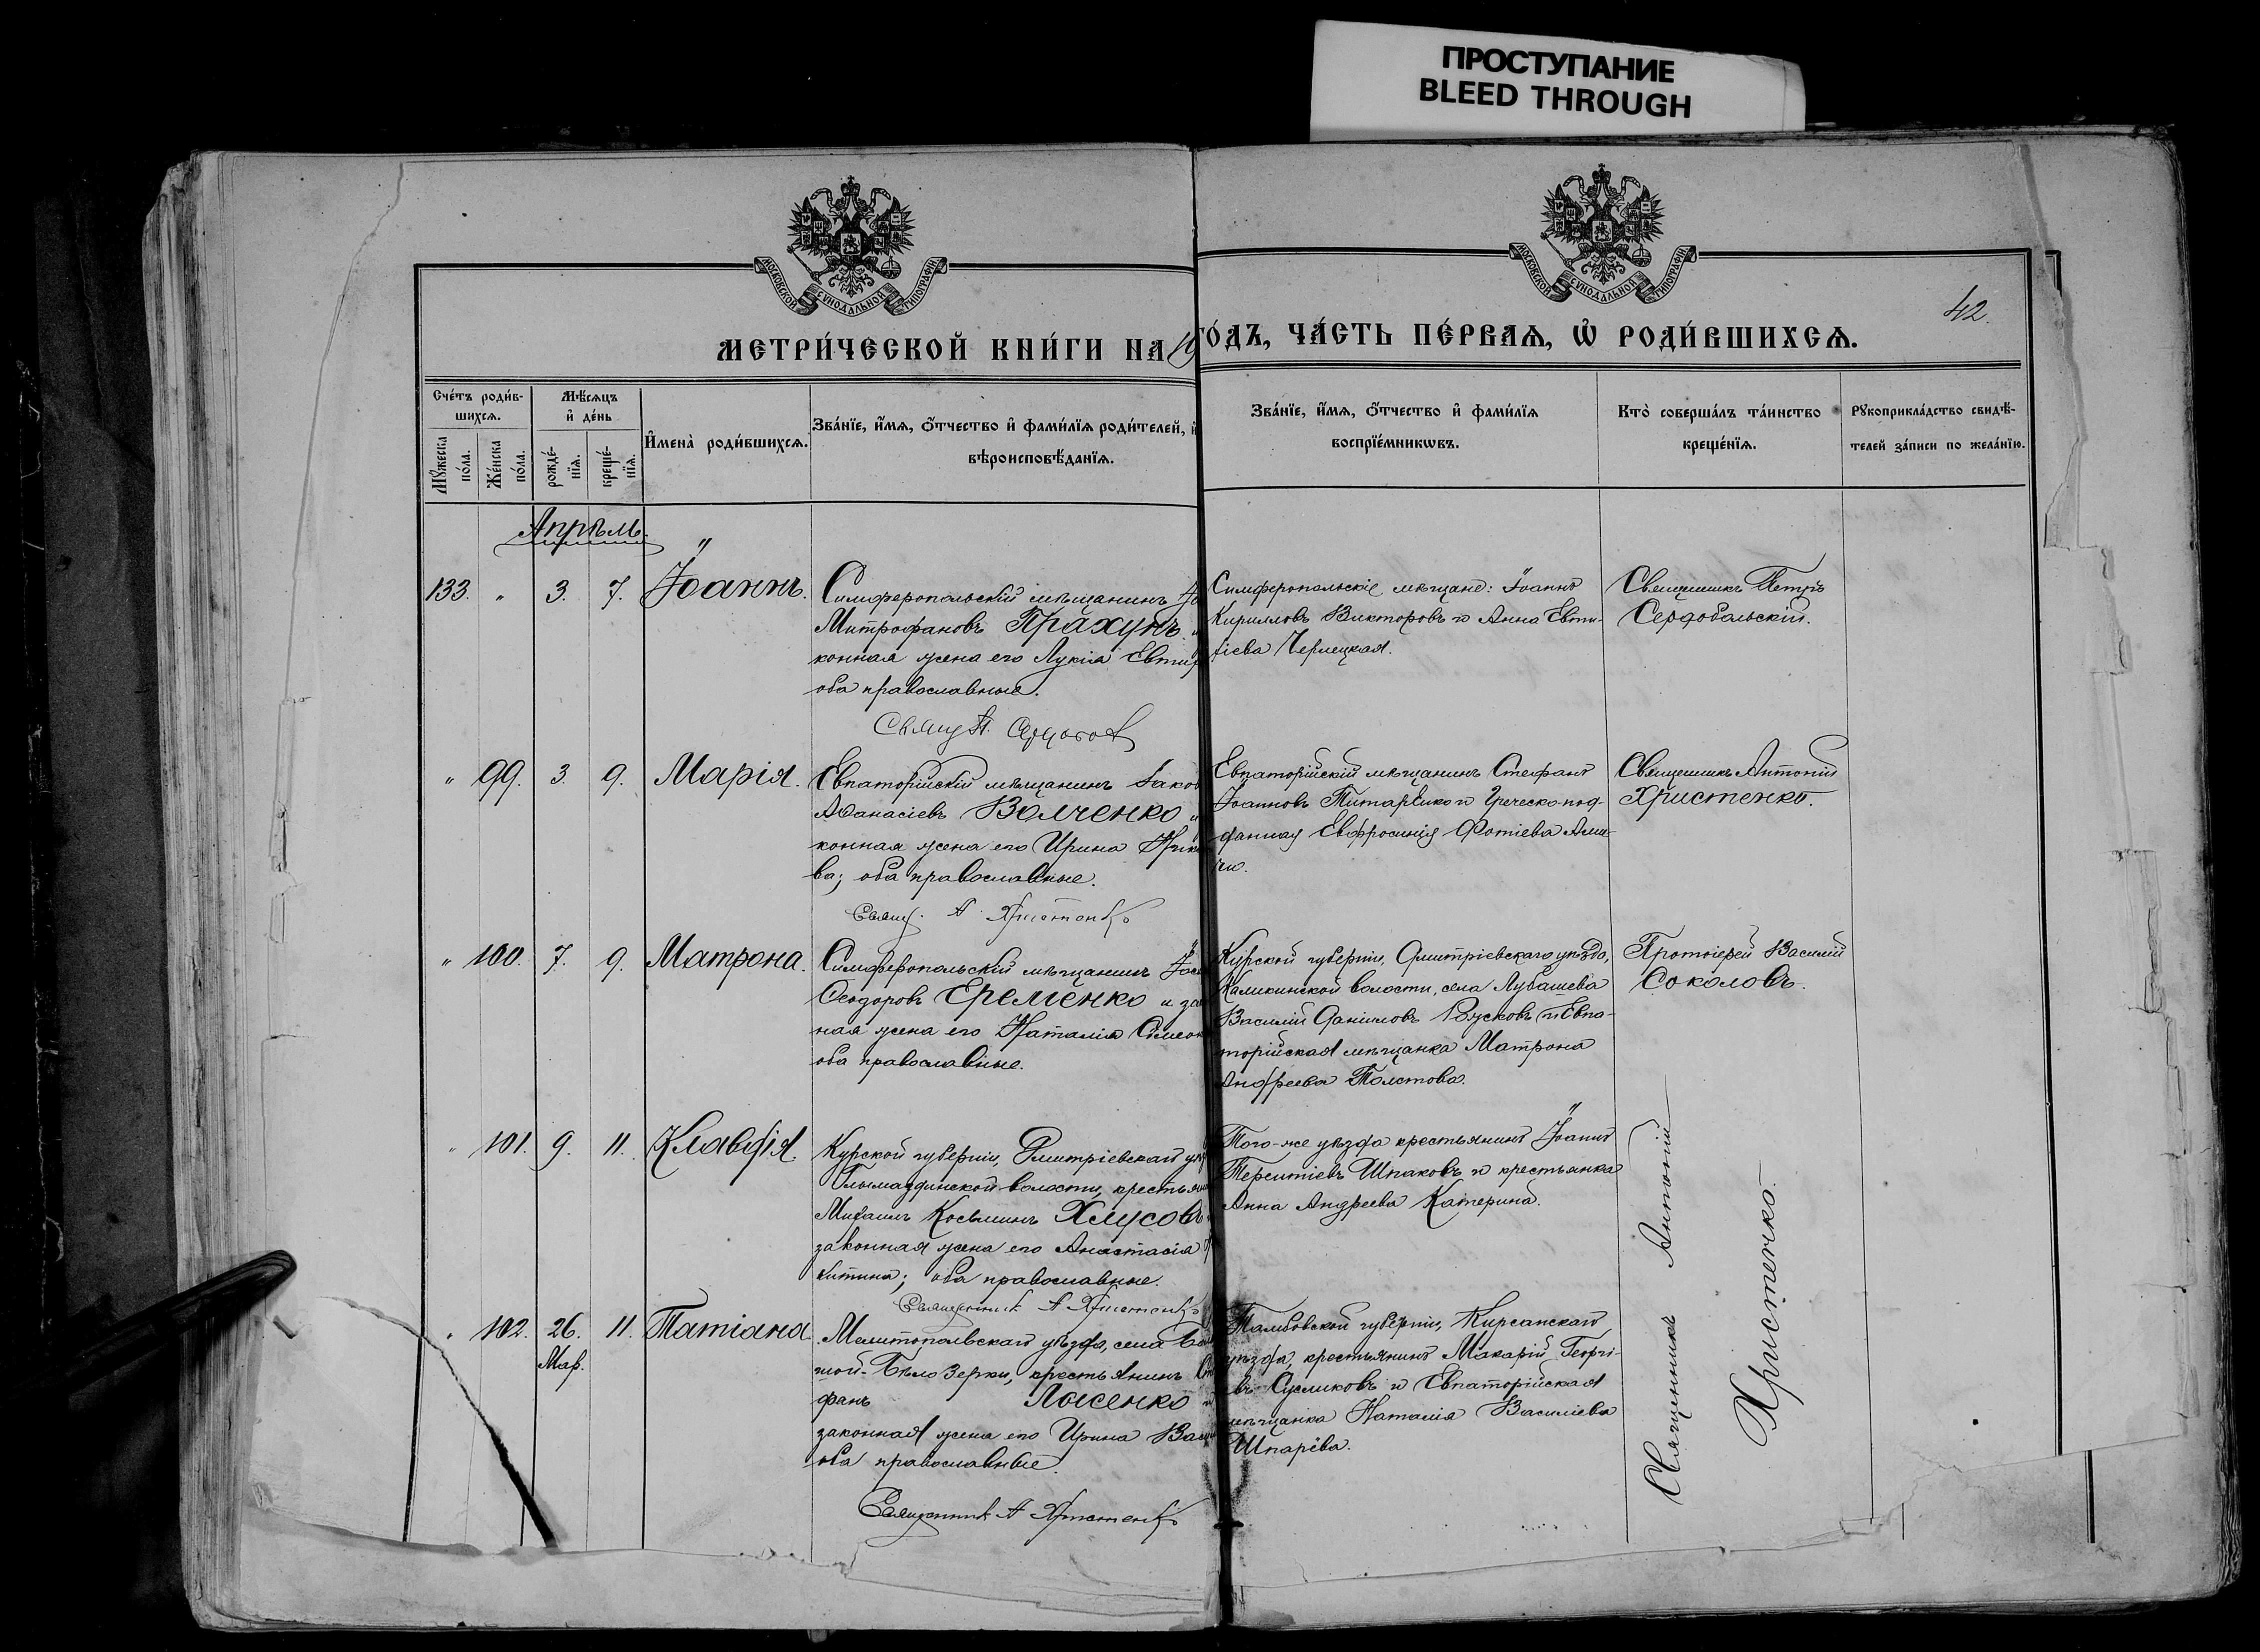 ПРОСТУПАНИЕ
BLEED THROUGH
МОСКОВСКОЙ СѴНОДАЛЬНОЙ ТИПОГРАФІИ
МОСКОВСКОЙ СѴНОДАЛЬНОЙ ТИПОГРАФІИ
42.
МЕТРИ́ЧЕСКОЙ КНИ́ГИ НА 19
ГО́ДЪ, ЧА́СТЬ ПЕ́РВАѦ, Ѡ҆ РОДИ́ВШИХСѦ.
Сче́тъ роди́в-
шихсѧ.
Мꙋ́жеска по́ла.
Же́нска по́ла.
Мѣ́сѧцъ
и҆ де́нь
рожде́-
нїѧ.
креще́-
нїѧ.
И҆мена̀ роди́вшихсѧ.
Зва́нїе, и҆́мѧ, ѻ҆́тчество и҆ фами́лїѧ роди́телей, и҆
вѣроисповѣ́данїѧ.
Зва́нїе, и҆́мѧ, ѻ҆́тчество и҆ фами́лїѧ
воспрїе́мникѡвъ.
Кто̀ соверша́лъ та́инство
креще́нїѧ.
Рꙋкоприкла́дство свидѣ́-
телей за́писи по жела́нїю.
Апрѣль.
133. " 3. 7. Іоаннъ.
Симферопольскій мѣщанинъ
Митрофановъ Прахунъ
конная жена его Лукія Евти
оба православные.
Свящ П. Сердобол
Симферопольскіе мѣщане: Іоаннъ
Кирилловъ Викторовъ и Анна Евти-
Черлецкая.
Священникъ Петръ
Сердобольскій.
" 99. 3. 9. Марія.
Евпаторійскій мѣщанинъ Іаков
Аѳанасіевъ Волченко
конная жена его Ирина
ва; оба православные.
Свящ. А Христенко
Евпаторійскій мѣщанинъ Стефанъ
Іоанновъ Титаренко и Греческо-под-
данная Евфросинія Фотіева
Священникъ Антоній
Христенко.
" 100. 7. 9. Матрона.
Симферопольскій мѣщанинъ
Ѳеодоровъ Еременко и за
ная жена его Наталія Симеон
оба православные.
Курской губерніи, Дмитріевскаго уѣзда,
волости, села Лубашева
Василій Даниловъ и Евпа-
торійская мѣщанка Матрона
Андреева Толстова.
Протоіерей Василій
Соколовъ.
" 101. 9. 11. Клавдія.
Курской губерніи, Дмитріевскаго
волости, крестьян
Михаилъ Косьминъ Хлусовъ
законная жена его Анастасія
китина; оба православные.
Священник А Христенко
Того-же уѣзда крестьянинъ Іоаннъ
Терентіевъ Шпаковъ и крестьянка
Анна Андреева Катерина.
" 102. 26. 11. Татіана.
Мар.
Мелитопольскаго уѣзда, села
шой-Бѣлозерки, крестьянинъ
фанъ Лысенко
законная жена его Ирина
оба православные.
Священник А Христенко
Тамбовской губерніи, Кирсанскаго
уѣзда, крестьянинъ Макарій Георгі-
въ Сусликовъ и Евпаторійская
мѣщанка Наталія Василіева
Шпарёва.
Священникъ Антоній
Христенко.